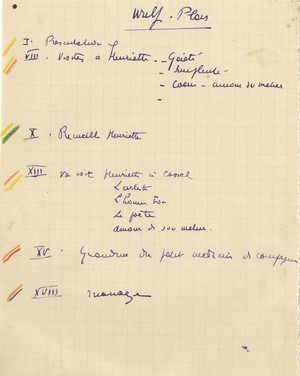 Wulf - Plans
I. Présentation
VIII - Visites à Henriette - Gaieté
- Simplicité -
- Coeur - amour du métier
-
X. Recueille Henriette
XIII Va voir Henriette à Cassel
L'artiste
L'homme bon
Le poète
amour de son métier.
XV. Grandeur du petit médecin de campagne
XVIII mariage